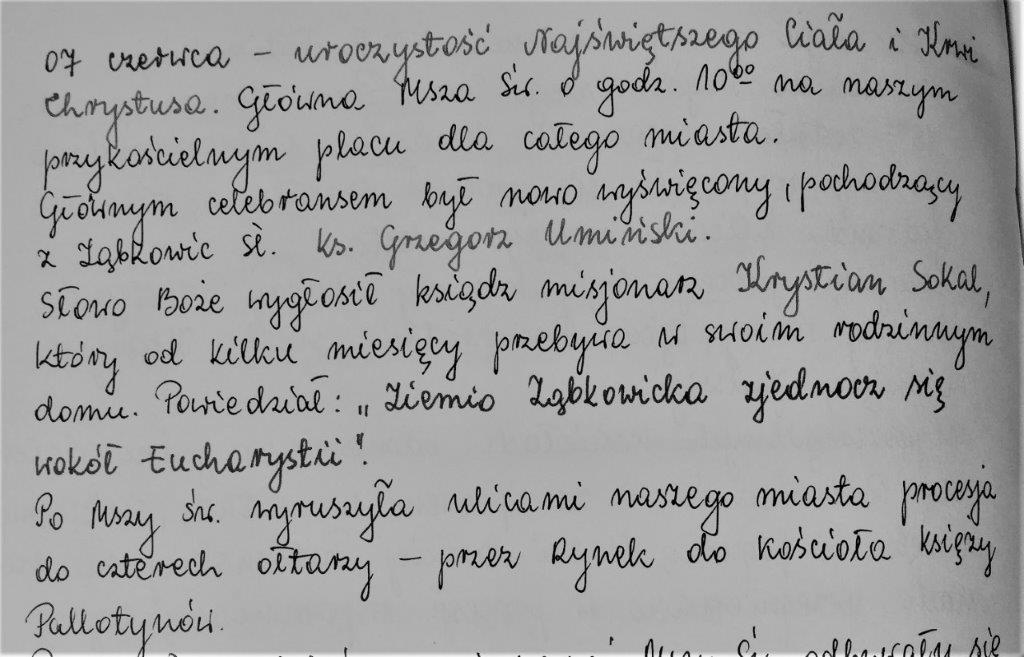 07 czerwca – uroczystość Najświętszego Ciała i Krwi
Chrystusa. Główna Msza Św. o godz. 10⁰⁰ na naszym
przykościelnym placu dla całego miasta.
Głównym celebransem był nowo wyświęcony, pochodzący
z Ząbkowic Śl. ks. Grzegorz Umiński.
Słowo Boże wygłosił ksiądz misjonarz Krystian Sokal,
który od kilku miesięcy przebywa w swoim rodzinnym
domu. Powiedział: „Ziemio Ząbkowicka zjednocz się
wokół Eucharystii".
Po Mszy św. wyruszyła ulicami naszego miasta procesja
do czterech ołtarzy – przez Rynek do kościoła księży
Pallotynów.
Mszy Św. odbywały się